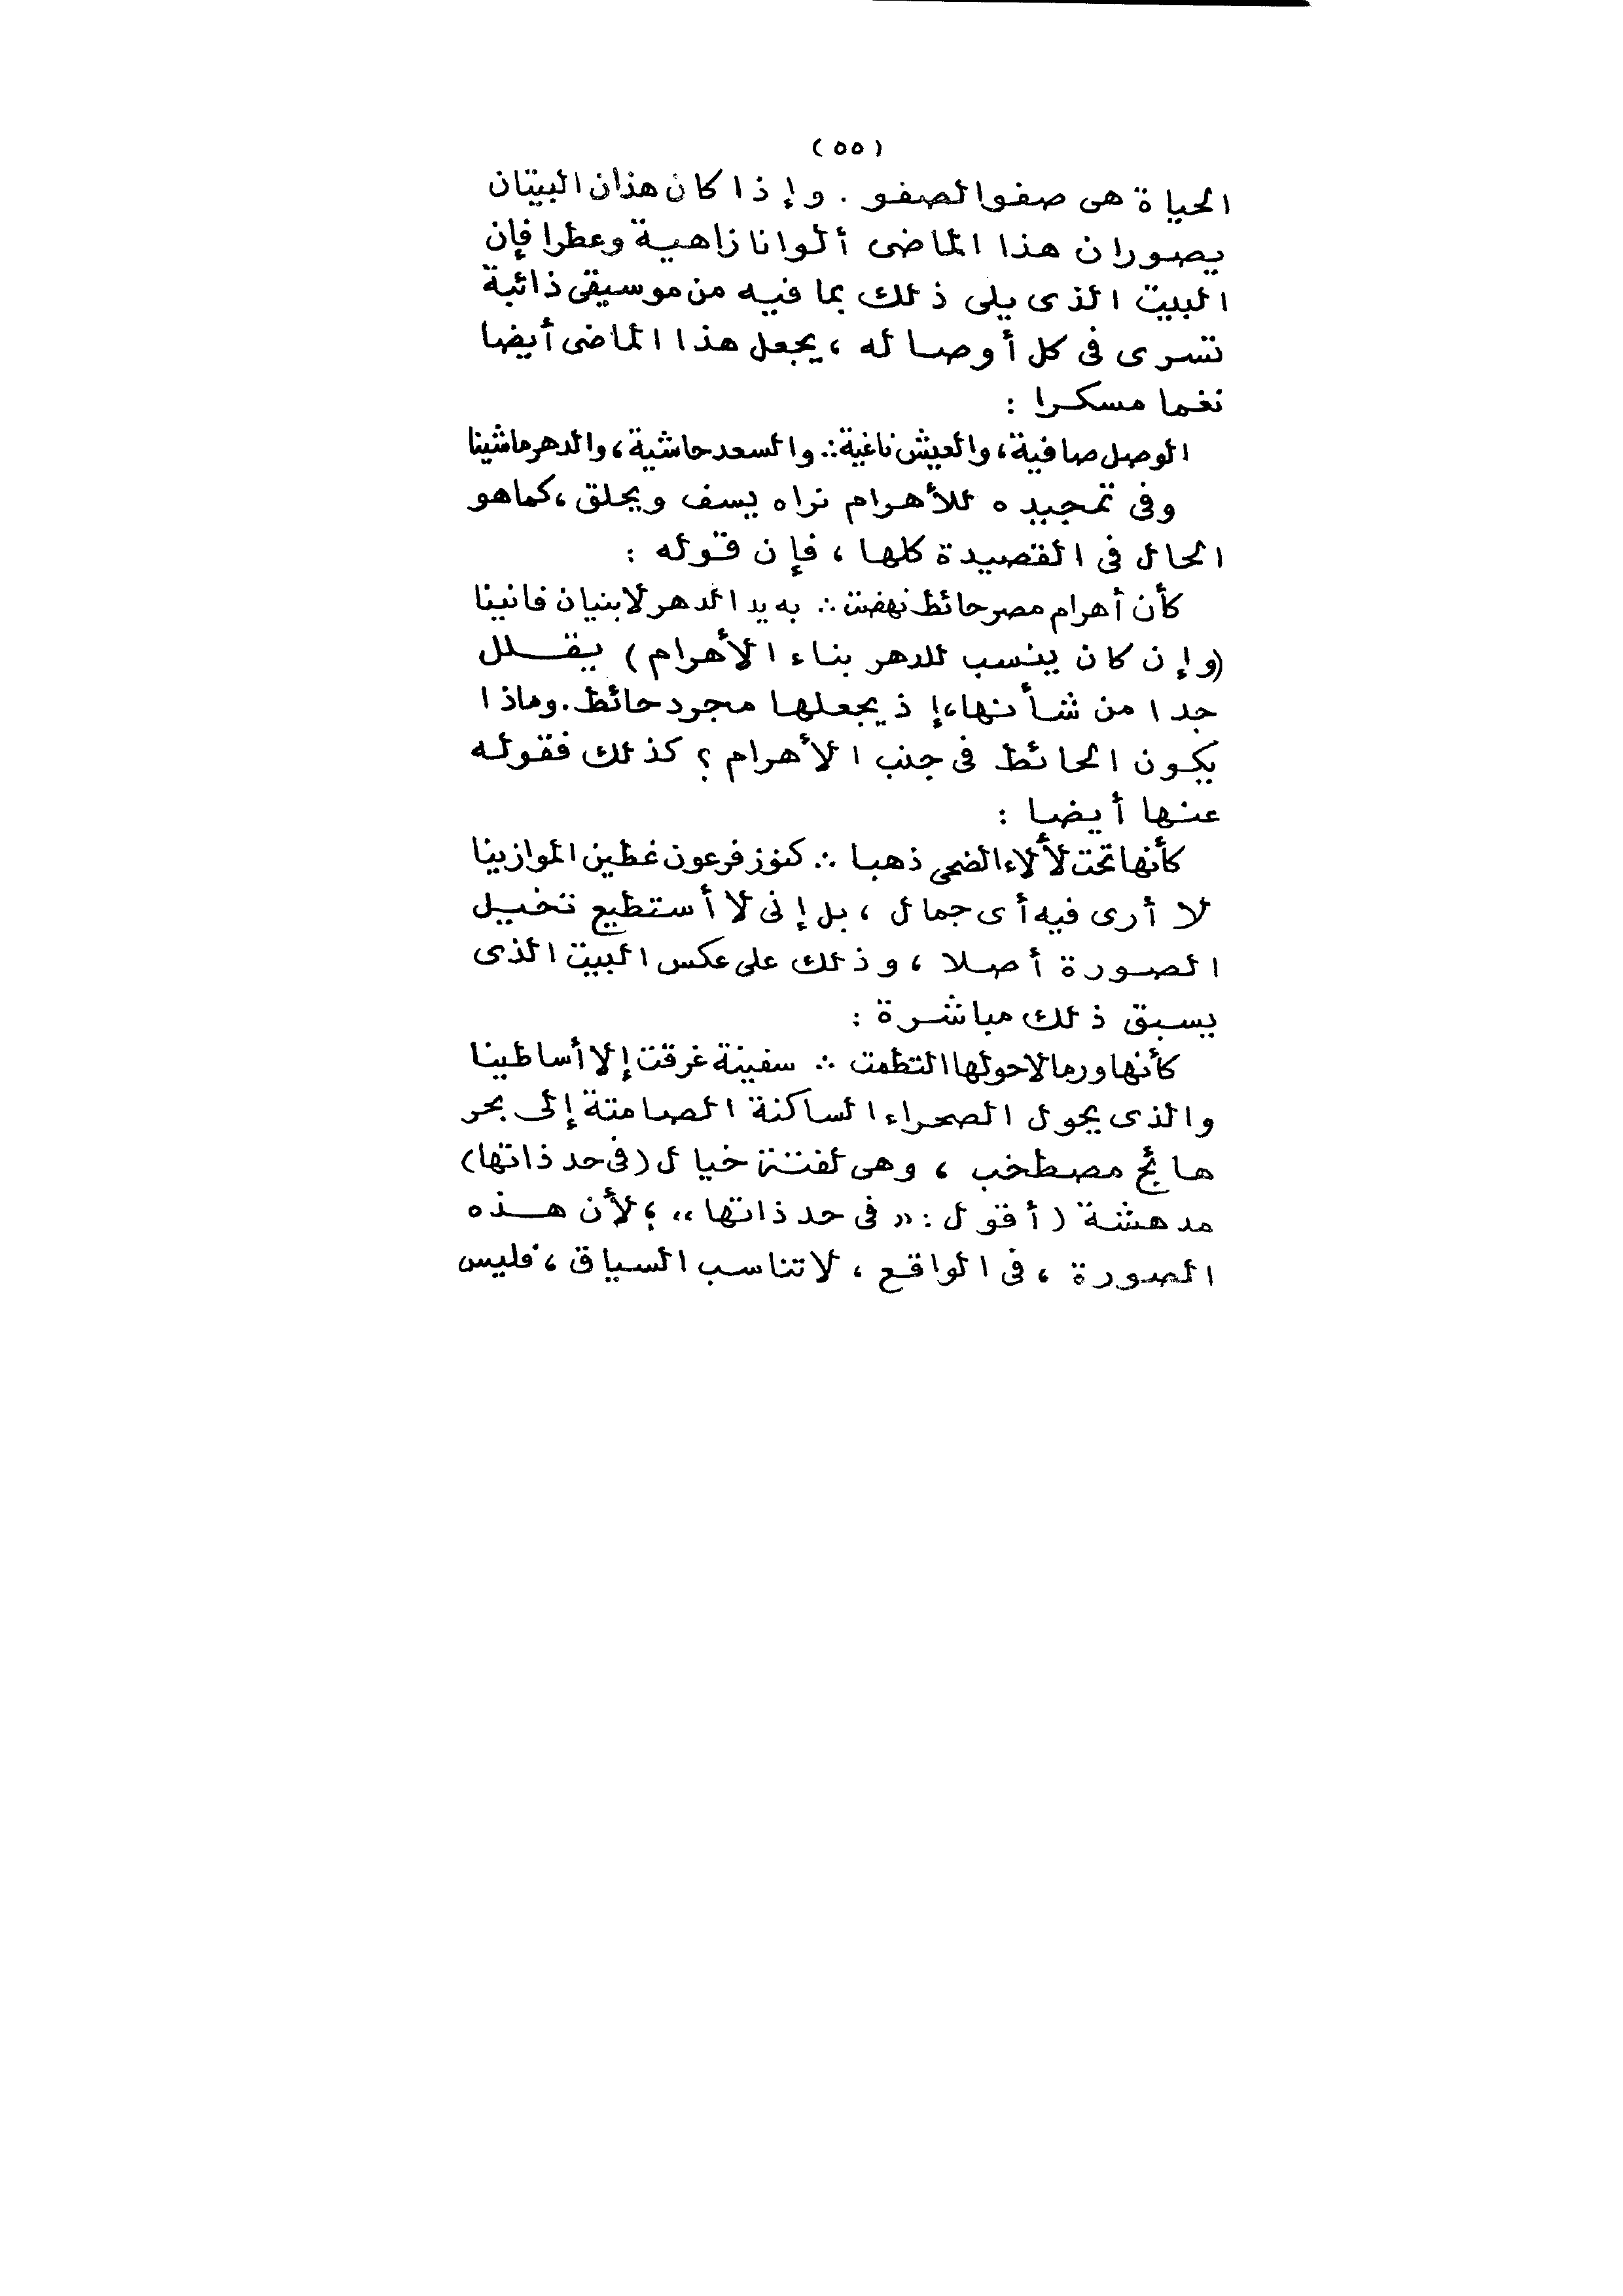 (٥٥)
الحياة هى صفو الصفو . وإذا كان هذان البيتان
يصوران هذا الماضى ألوانا زاهية وعطرا فإن
البيت الذى يلى ذلك بما فيه من موسيقى ذائبة
تسرى فى كل أوصاله ، يجعل هذا الماضى أيضا
نغما مسكرا :
الوصل صافية، والعيش ناغية ∴ والسعد حاشية، والدهر ماشينا
وفى تمجيده للأهرام نراه يسف ويحلق ، كما هو
الحال فى القصيدة كلها ، فإن قوله :
كأن أهرام مصر حائط نهضت ∴ به يد الدهر لا بنيان فانينا
(وإن كان ينسب للدهر بناء الأهرام) يقلل
جدا من شأنها، إذ يجعلها مجرد حائط. وماذا
يكون الحائط فى جنب الأهرام ؟ كذلك فقوله
عنها أيضا :
كأنها تحت لألاء الضحى ذهبا ∴ كنوز فرعون غطين الموازينا
لا أرى فيه أى جمال ، بل إنى لا أستطيع تخيل
الصورة أصلا ، وذلك على عكس البيت الذى
يسبق ذلك مباشرة :
كأنها ورمالا حولها التطمت ∴ سفينة غرقت إلا أساطينا
والذى يحول الصحراء الساكنة الصامتة إلى بحر
هائج مصطخب ، وهى لفتة خيال (فى حد ذاتها)
مدهشة ( أقول : « فى حد ذاتها » ؛ لأن هذه
الصورة ، فى الواقع ، لا تناسب السياق ، فليس